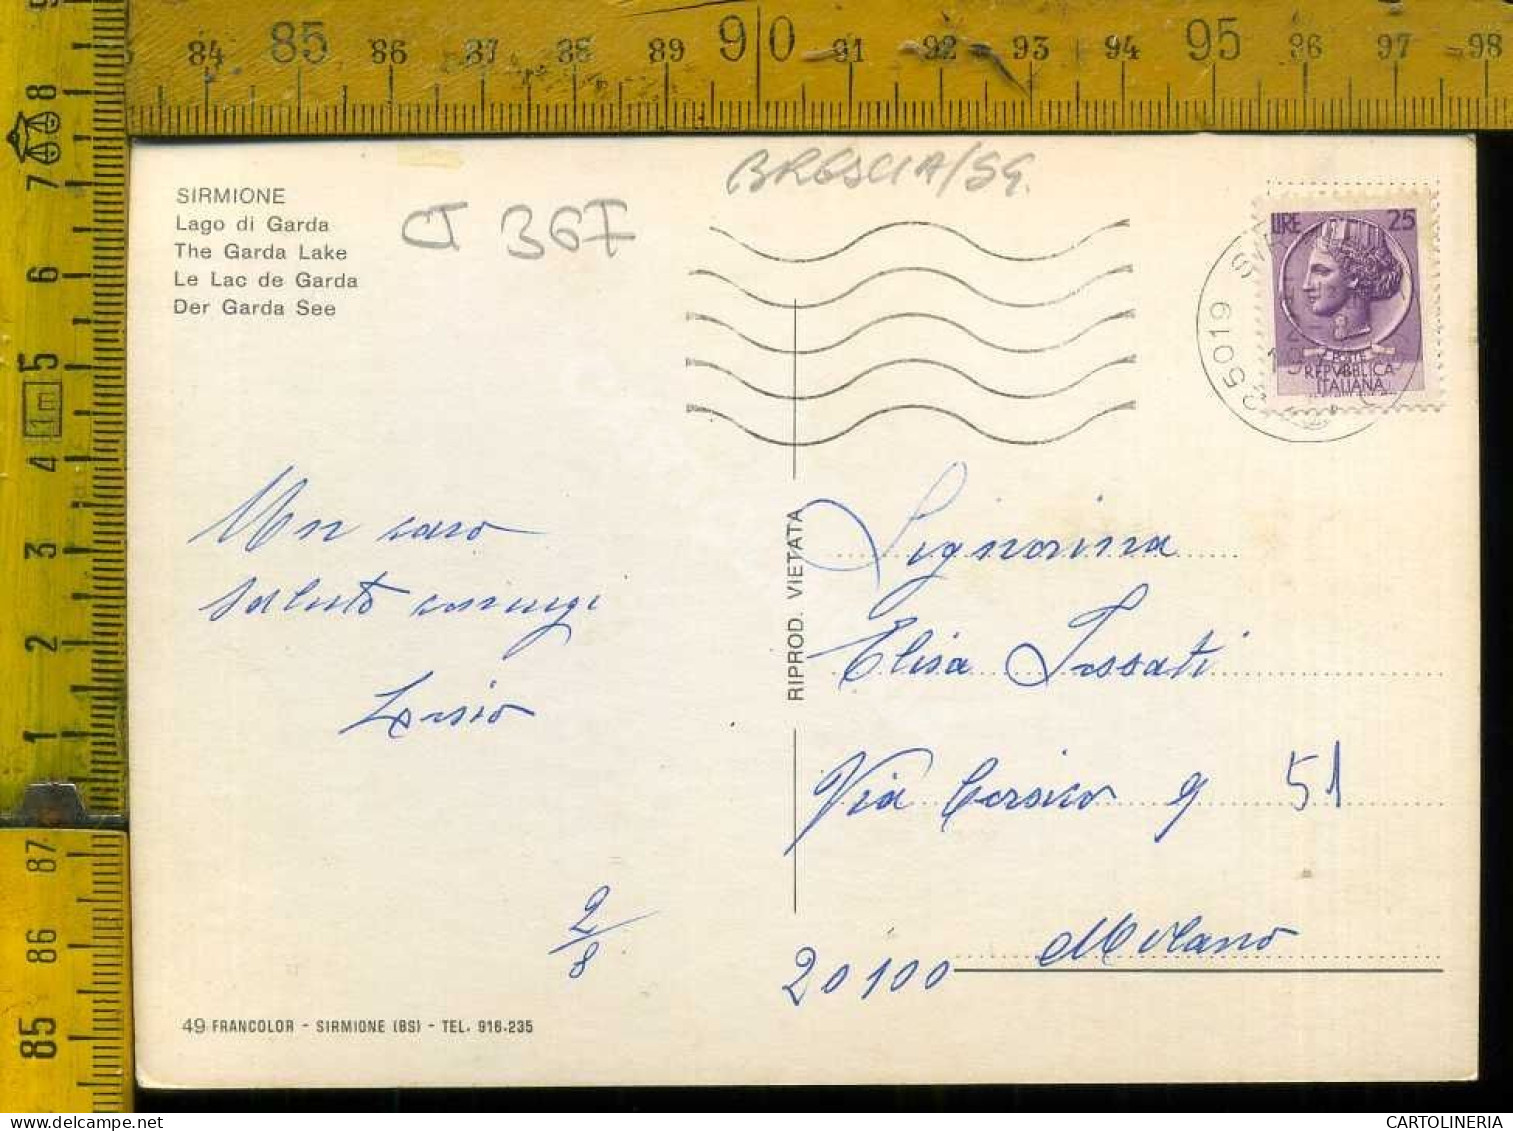 84 85 86 87 88 89 90 91 92 93 94 95 96 97 98
BRESCIA/SG.
SIRMIONE
Lago di Garda
The Garda Lake
Le Lac de Garda
Der Garda See
CT 367
LIRE 25
POSTE
REPVBBLICA
ITALIANA
25019
Un caro
saluto
RIPROD. VIETATA
Signorina
Elisa
Via Corsico 9 51
20100 Milano
2/8
49 FRANCOLOR - SIRMIONE (BS) - TEL. 916.235
8
7
6
5
1m
4
3
2
1
87
86
85
CARTOLINERIA